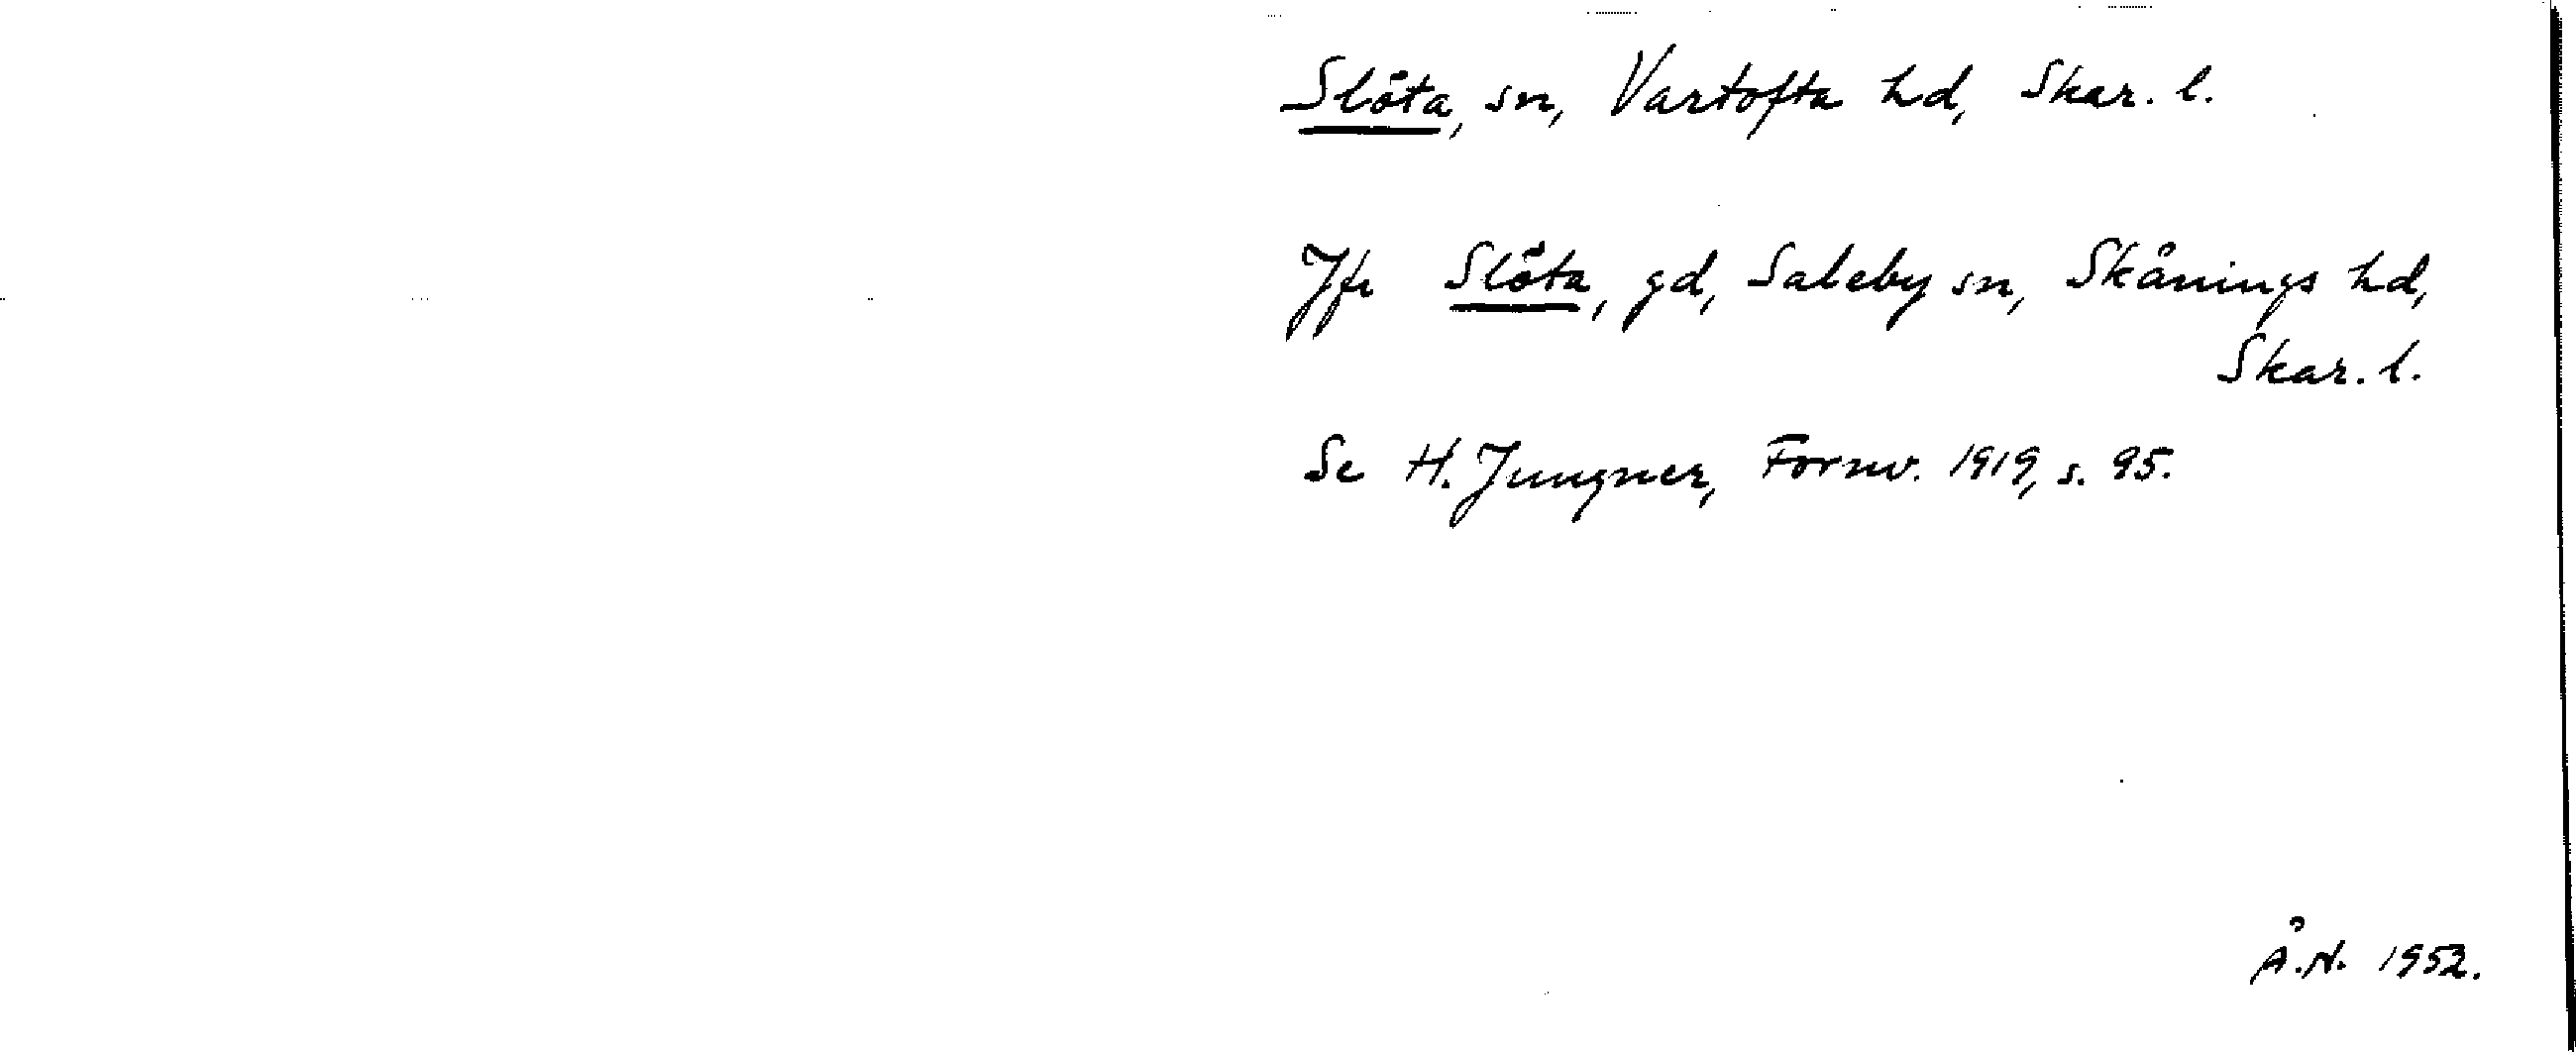 Slöta, sn, Vartofta hd, Skar. l.
Jfr Slöta, gd, Saleby sn, Skånings hd,
Skar. l.
Se H. Jungner, Fornv. 1919, s. 95.
Å.N. 1952.